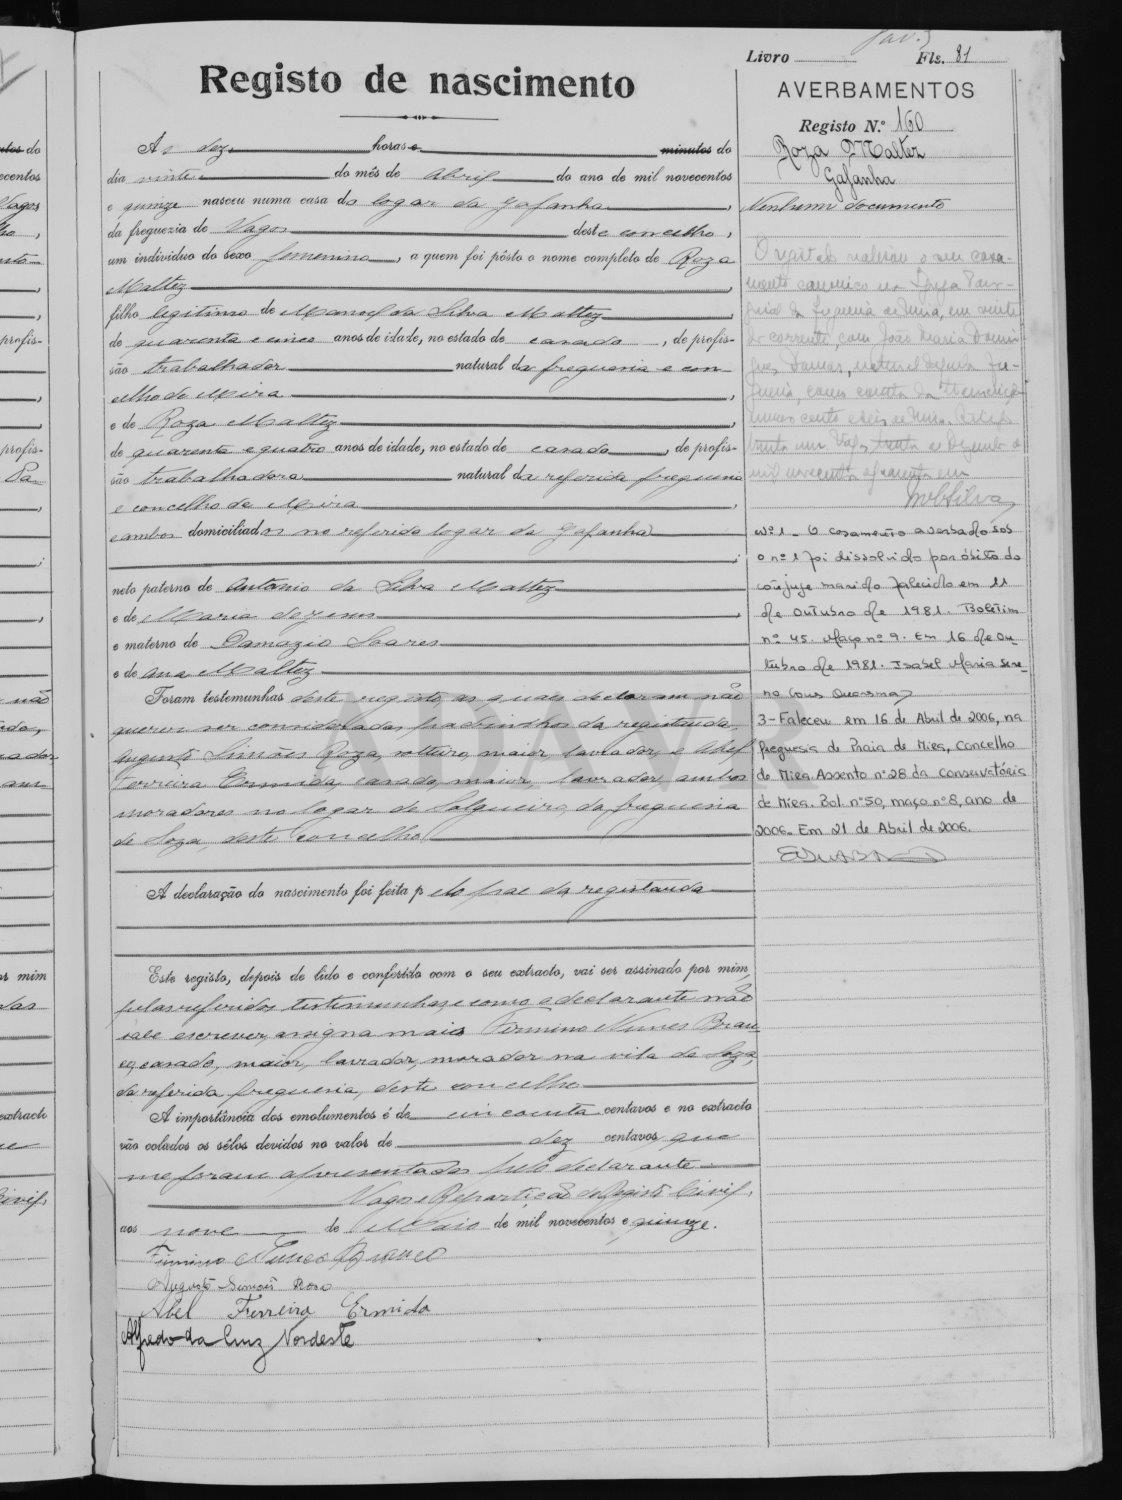 Livro Fls. 81
Registo de nascimento
AVERBAMENTOS
Registo N.º 160
Roza Maltez
Gafanha
Nenhum documento
Às dez horas e minutos do
dia vinte do mês de Abril do ano de mil novecentos
e quinze nasceu numa casa do logar da Gafanha,
da freguezia de Vagos deste concelho,
um individuo do sexo femenino, a quem foi pôsto o nome completo de Roza
Maltez,
filho legitimo de Manoel da Silva Maltez,
de quarenta e um anos de idade, no estado de casado, de profis-
são trabalhador natural da freguesia e con
celho de Mira,
e de Roza Maltez,
de quarenta e quatro anos de idade, no estado de casada, de profis-
são trabalhadora natural da referida freguesia
e concelho de Mira,
e ambos domiciliados no referido logar da Gafanha
;
neto paterno de Antonio da Silva Maltez
e de Maria de Jesus,
e materno de Damazio Soares
e de Ana Maltez
Foram testemunhas deste registo, as quais declaram não
querer ser consideradas padrinhos da registanda,
Augusto Simões Roza, solteiro, maior, lavrador, e Abel
Ferreira Ermida, casado, maior, lavrador, ambos
moradores no logar de Salgueiro, da freguesia
de Soza, deste concelho
A declaração do nascimento foi feita pelo pae da registanda
Este registo, depois de lido e conferido com o seu extracto, vai ser assinado por mim,
pelas referidas testemunhas, e como o declarante não
sabe escrever, assigna mais Firmino Nunes Bran
co, casado, maior, lavrador, morador na vila de Soza,
da referida freguesia, deste concelho
A importância dos emolumentos é de cincoenta centavos e no extracto
vão colados os sêlos devidos no valor de dez centavos que
me foram apresentados pelo declarante
Vagos e Repartição do Registo Civil,
aos nove de Maio de mil novecentos e quinze.
Firmino Nunes Branco
Augusto Simões Rosa
Abel Ferreira Ermida
Alfredo da Cruz Nordeste
O registado celebrou o seu casa-
mento canonico na Igreja Paro-
quial da freguesia de Mira, em vinte
do corrente, com João Maria Domin
gues Damas, natural desta fre-
guesia,
trinta e de Dezembro de
mil novecentos e quarenta e um
Silva
Nº 1 - O casamento averbado sob
o nº 1 foi dissolvido por óbito do
cônjuge marido falecido em 11
de Outubro de 1981. Boletim
nº 45. Maço nº 9. Em 16 de Ou
tubro de 1981. Isabel Maria Sere
no
3-Faleceu em 16 de Abril de 2006, na
freguesia de Praia de Mira, Concelho
de Mira. Assento nº 28 da Conservatória
de Mira. Bol. nº 50, maço nº 8, ano de
2006. Em 21 de Abril de 2006.